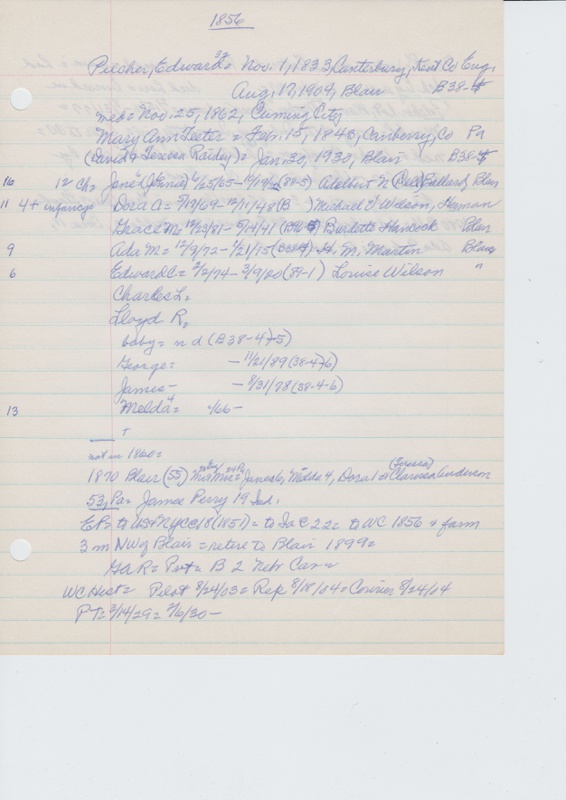 1856
Pilcher, Edward = Nov. 1, 1833, Canterbury, Kent Co Eng.
Aug. 17, 1909, Blair B38-4
me = Nov. 25, 1862, Cuming City
Mary Ann = Feb. 15, 1843, Co Pa
(David & Teresa Raidey) = Jan 30, 1930, Blair B38-4
16 12 Ch = Jane (Anna) 6/25/65 - (88-5) Adelbert N Pullard, Blair
11 4+ infancy Dora A = 5/19/69 - 12/11/48 (B ) Michael Wilson, Herman
Grace M = 12/23/81 - 5/14/41 Burdette Hancock Blair
9 Ada M = 12/9/72 - 1/21/15 H. M. Martin Blair
6 Edward C = 2/2/74 - 3/9/60 (89-1) Louise Wilson "
Charles L =
Lloyd R,
baby = nd (B38-4-5)
George = - 11/21/89 (38-4-6)
James - - 8/31/78 (38-4-6)
13 Melda 4 = /66 -
not in 1860 =
1870 Blair (55) Jane 6, Melda 4, Dora 1 = (Teresa) Clarissa Anderson
53, Pa = James Perry 19 Ind.
EP = to US = NYC C 18 (1851) = to Ia C 22 = to WC 1856 & farm
3 m NW of Blair = retire to Blair 1899 =
GAR = Pvt = B 2 Nebr Cav =
WC Hist = Pilot 8/24/03 = Rep 8/18/04 = Courier 8/24/04
PT = 3/14/29 = 2/6/30 -